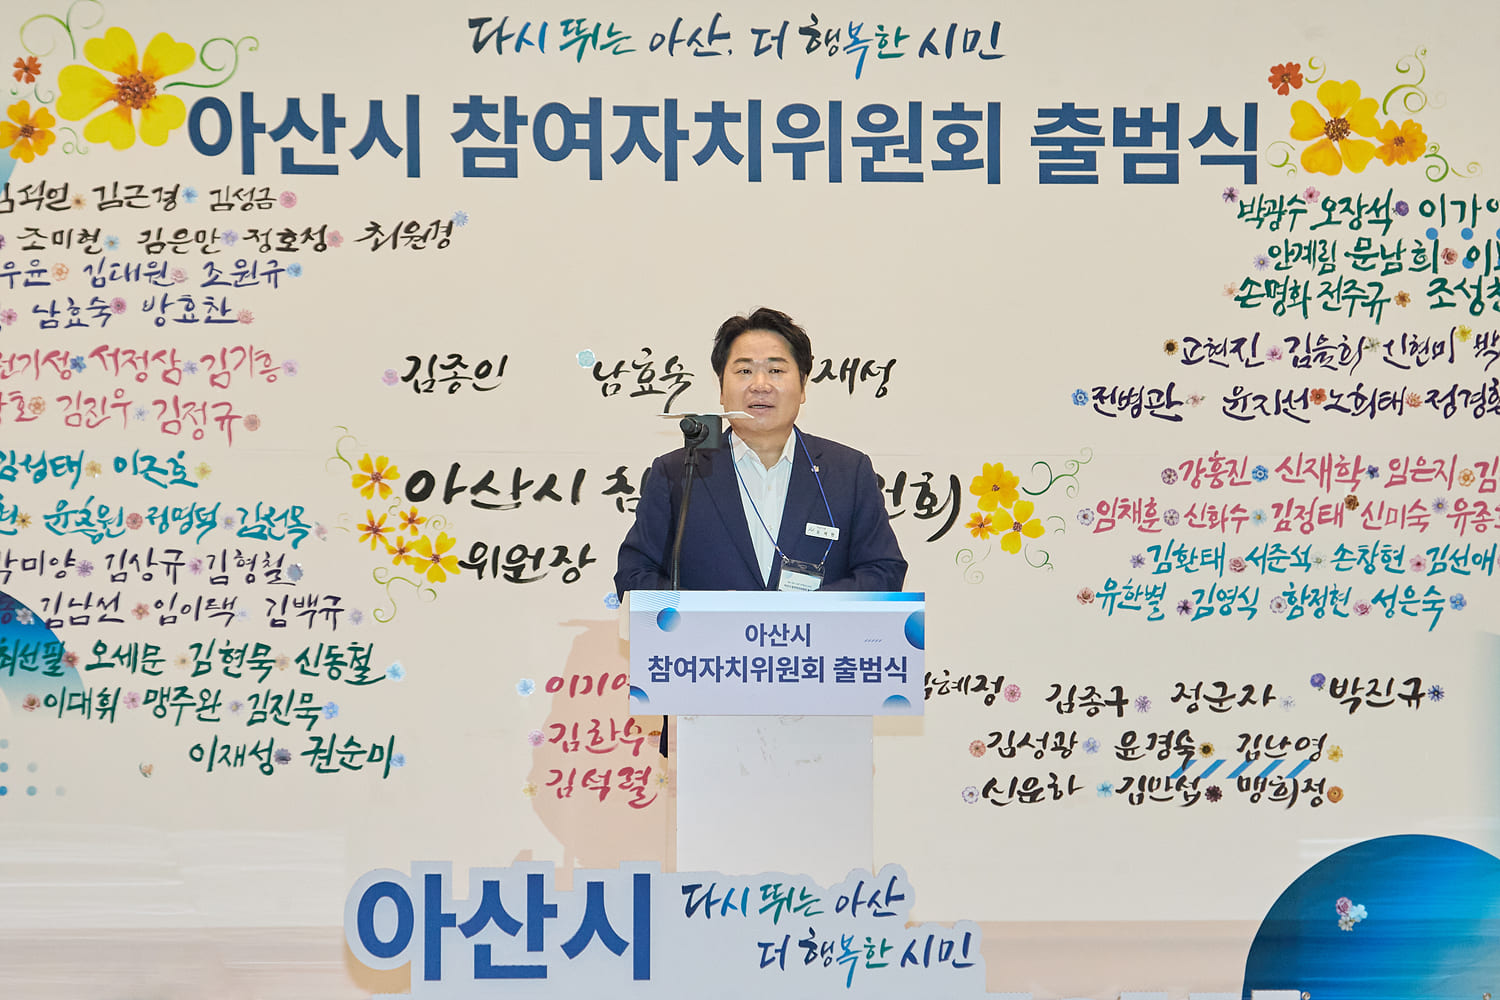 다시 뛰는 아산, 더 행복한 시민
아산시 참여자치위원회 출범식
김근경 김성금
조미현 김은만 정호성 최원경
우윤 김태원 조원규
남효숙 방효찬
전기성 서정삼 김기흥
김진우 김정규
김성태 이근호
윤홍원 정명덕 김선옥
박미양 김상규 김형철
김남선 임이택 김백규
최선필 오세문 김현묵 신동철
이대휘 맹주완 김진묵
이재성 권순미
김종인 남효숙 이재성
아산시
위원장
이기
김한수
김석렬
박광수 오장석 이가
안계림 문남희
손명화 전주규 조성
고현진 김을희 신현미
전병관 윤지선 노희태 정경환
강흥진 신재학 임은지 김
임채훈 신화수 김정태 신미숙 유종
김환태 서준석 손창현 김선애
유한별 김영식 함정현 성은숙
혜정 김종구 정군자 박진규
김성광 윤경숙 김난영
신윤하 김만섭 맹희정
아산시
참여자치위원회 출범식
아산시 다시 뛰는 아산
더 행복한 시민